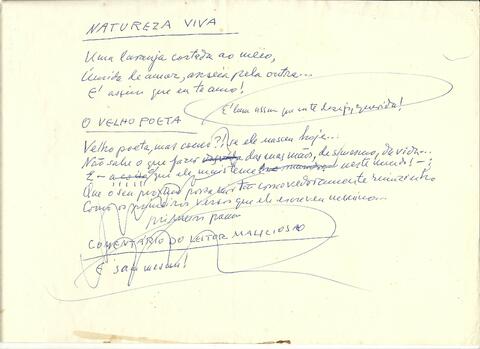 NATUREZA VIVA
Uma laranja cortada ao meio,
Úmida de amor, anseia pela outra...
É assim que eu te amo!
É bem assim que eu te desejo, querida!
O VELHO POETA
Velho poeta, mas como?! Se ele nasceu hoje...
Não sabe o que fazer das mãos, de si mesmo, da vida...
E a coisa que ele mais teme neste mundo
Que o seu próximo poema tão comovedoramente ruinzinho
Como os primeiros versos que ele escreveu
primeiros
COMENTÁRIO DO LEITOR MALICIOSO
E são mesmo!